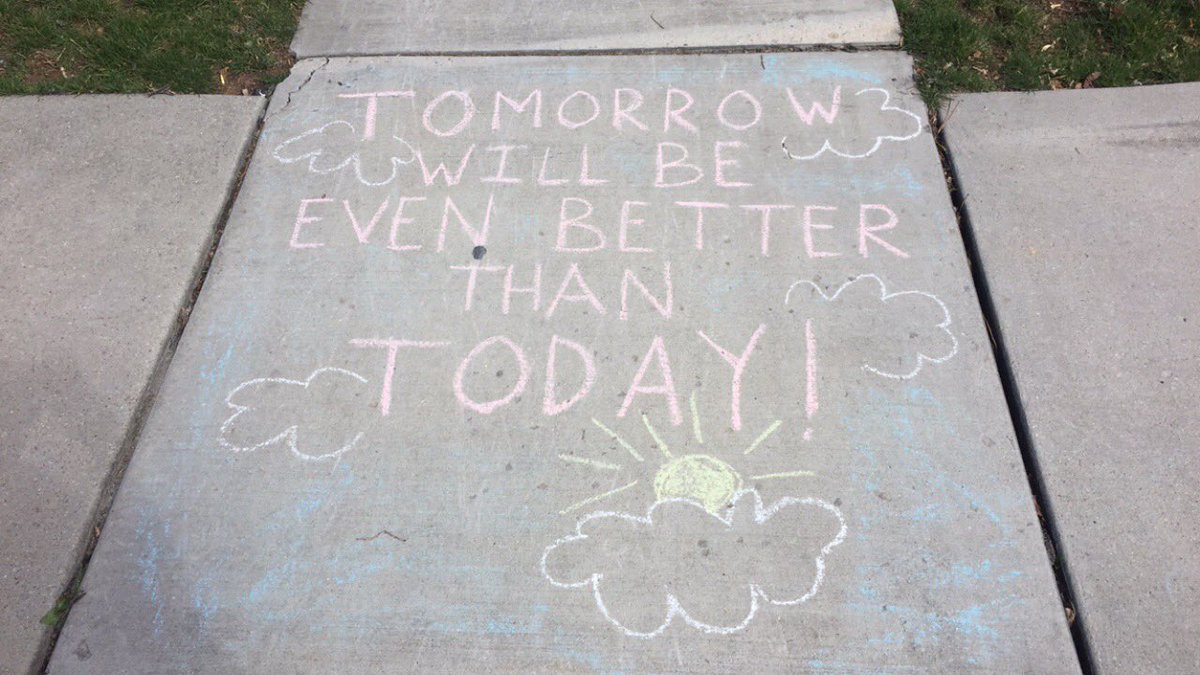 TOMORROW
WILL BE
EVEN BETTER
THAN
TODAY!